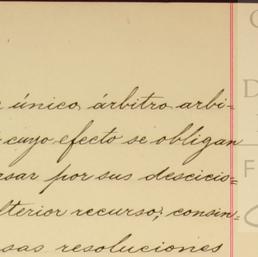 único, árbitro arbi=
cuyo efecto se obligan
sar por sus descicio=
lterior recurso; consin=
sas resoluciones